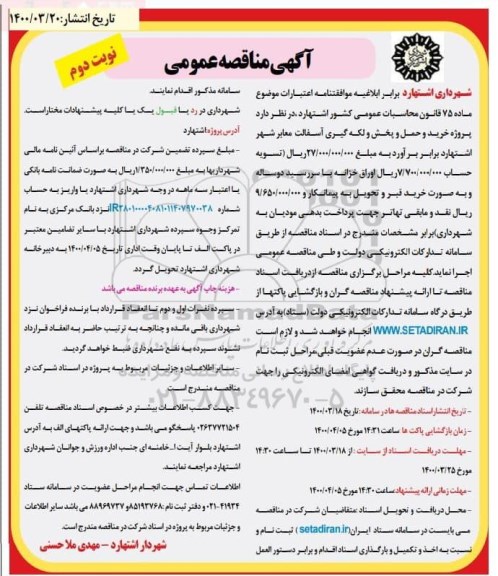 تاریخ انتشار: ۱۴۰۰/۰۳/۲۰
آگهی مناقصه عمومی
نوبت دوم
شهرداری اشتهارد برابر ابلاغیه موافقتنامه اعتبارات موضوع
ماده ۷۵ قانون محاسبات عمومی کشور اشتهارد، در نظر دارد
پروژه خرید و حمل و پخش و لکه گیری آسفالت معابر شهر
اشتهارد برابر برآورد به مبلغ ۲۷/۰۰۰/۰۰۰/۰۰۰ریال (تسویه
حساب ۷/۷۰۰/۰۰۰/۰۰۰ریال اوراق خزانه با سررسید دوساله
و به صورت خرید قیر و تحویل به پیمانکار و ۹/۶۵۰/۰۰۰/۰۰۰
ریال نقد و مابقی تهاتر جهت پرداخت بدهی مودیان به
شهرداری)برابر مشخصات مشدرج در اسناد مناقصه از طریق
سامانه تدارکات الکترونیکی دولت و طی مناقصه عمومی
اجرا نماید کلیه مراحل برگزاری مناقصه ازدریافت اسناد
مناقصه تا ارائه پیشنهاد مناقصه گران و بازگشایی پاکتها از
طریق درگاه سامانه تدارکات الکترونیکی دولت (ستاد) به آدرس
WWW.SETADIRAN.IR انجام خواهد شد و لازم است
مناقصه گران در صورت عدم عضویت قبلی مراحل ثبت نام
در سایت مذکور و دریافت گواهی امضای الکترونیکی را جهت
شرکت در مناقصه محقق سازند.
- تاریخ انتشار اسناد مناقصه ها در سامانه : تاریخ ۱۴۰۰/۰۳/۱۸
- زمان بازگشایی پاکت ها ساعت ۱۴:۳۱ مورخ ۱۴۰۰/۰۴/۰۵
- مهلت دریافت اسناد از سایت : از ۱۴۰۰/۰۳/۱۸ تا ساعت ۱۴:۳۰
مورخ ۱۴۰۰/۰۳/۲۵
- مهلت زمانی ارائه پیشنهاد: ساعت ۱۴:۳۰ مورخ ۱۴۰۰/۰۴/۰۵
- محل دریافت و تحویل اسناد: متقاضیان شرکت در مناقصه
می بایست در سامانه ستاد ایران(setadiran.ir) ثبت نام و
نسبت به اخذ و تکمیل و بارگذاری اسناد اقدام و برابر دستورالعمل
سامانه مذکور اقدام نمایند.
شهرداری در رد یا قبول یک یا کلیه پیشنهادات مختاراست.
آدرس پروژه اشتهارد
- مبلغ سپرده تضمین شرکت در مناقصه براساس آئین نامه مالی
شهرداریها به مبلغ ۱/۳۵۰/۰۰۰/۰۰۰ریال به صورت ضمانت نامه بانکی
با اعتبار سه ماهه در وجه شهرداری اشتهارد یا واریز به حساب
نزد بانک مرکزی به نام
تمرکز وجوه سپرده شهرداری اشتهارد یا سایر تضامین معتبر
در پاکت الف تا پایان وقت اداری تاریخ ۱۴۰۰/۰۴/۰۵ به دبیرخانه
شهرداری اشتهارد تحویل گردد.
- هزینه چاپ آگهی به عهده برنده مناقصه می باشد
- سپرده نفرات اول و دوم تا انعقاد قرارداد با برنده فراخوان نزد
شهرداری باقی مانده و چنانچه به ترتیب حاضر به انعقاد قرارداد
نشوند سپرده به نفع شهرداری ضبط خواهد گردید.
- سایر اطلاعات و جزئیات مربوط به پروژه در اسناد شرکت در
مناقصه مندرج است.
- جهت کسب اطلاعات بیشتر در خصوص اسناد مناقصه تلفن
۰۲۶۳۷۷۲۱۵۰۴ پاسخگو می باشد و جهت ارائه پاکتهای الف به آدرس
اشتهارد بلوار آیت ا... خامنه ای جنب اداره ورزش و جوانان شهرداری
اشتهارد مراجعه نمایند.
اطلاعات تماس جهت انجام مراحل عضویت در سامانه ستاد
۰۲۱-۴۱۹۳۴ و دفتر ثبت نام :۸۵۱۹۳۷۶۸ و ۸۸۹۶۹۷۳۷ می باشد سایر اطلاعات
و جزئیات مربوط به پروژه در اسناد شرکت در مناقصه مندرج است.
شهردار اشتهارد – مهدی ملاحسنی
۰۲۱-۸۸۳۴۹۶۷۰-۵